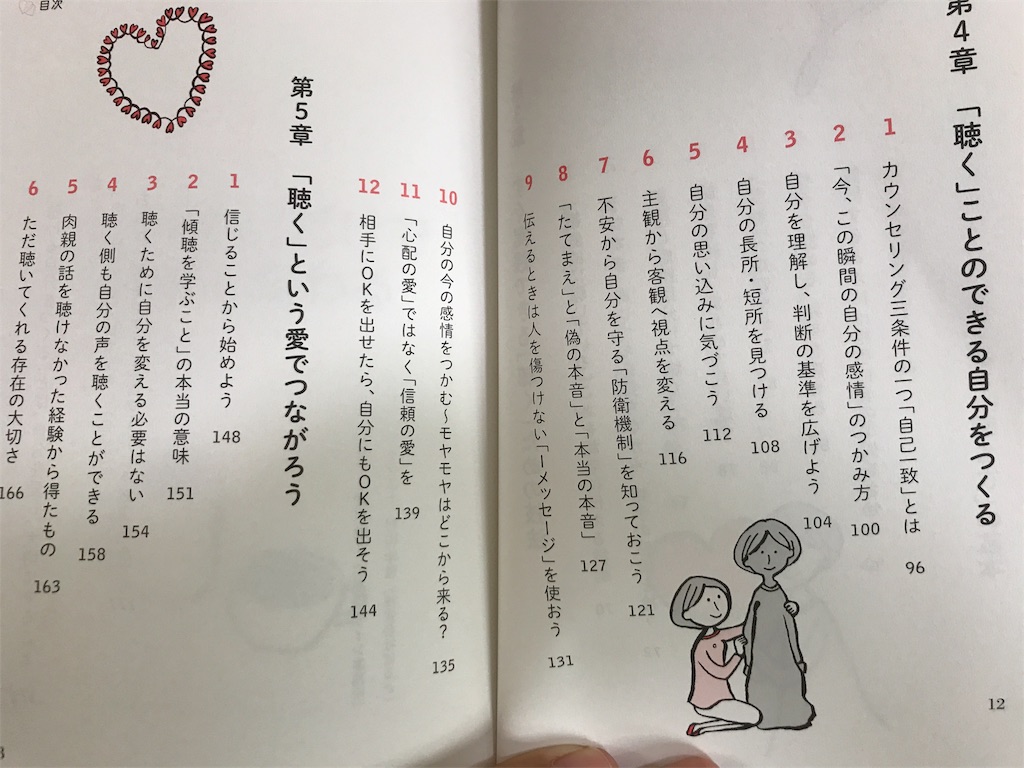 第4章 「聴く」ことのできる自分をつくる
1 カウンセリング三条件の一つ「自己一致」とは 96
2 「今、この瞬間の自分の感情」のつかみ方 100
3 自分を理解し、判断の基準を広げよう 104
4 自分の長所・短所を見つける 108
5 自分の思い込みに気づこう 112
6 主観から客観へ視点を変える 116
7 不安から自分を守る「防衛機制」を知っておこう 121
8 「たてまえ」と「偽の本音」と「本当の本音」 127
9 伝えるときは人を傷つけない「Iメッセージ」を使おう 131
12
10 自分の今の感情をつかむ〜モヤモヤはどこから来る? 135
11 「心配の愛」ではなく「信頼の愛」を 139
12 相手にOKを出せたら、自分にもOKを出そう 144
第5章 「聴く」という愛でつながろう
1 信じることから始めよう 148
2 「傾聴を学ぶこと」の本当の意味 151
3 聴くために自分を変える必要はない 154
4 聴く側も自分の声を聴くことができる 158
5 肉親の話を聴けなかった経験から得たもの 163
6 ただ聴いてくれる存在の大切さ 166
目次